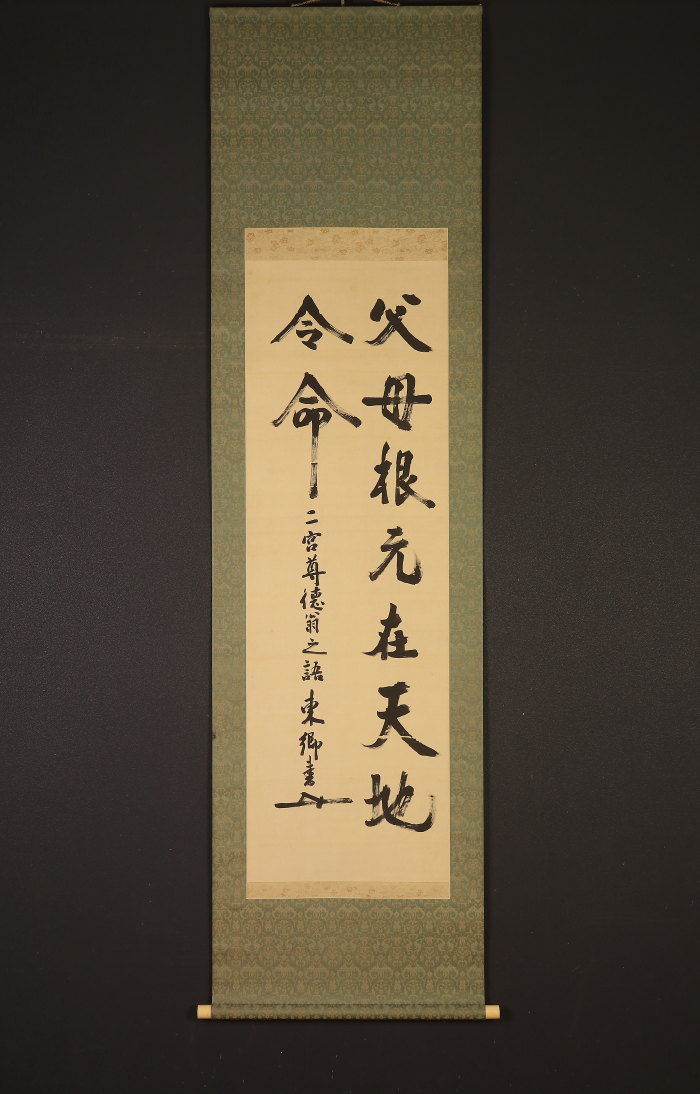 父母根元在天地
令命 二宮尊徳翁之語 東郷書